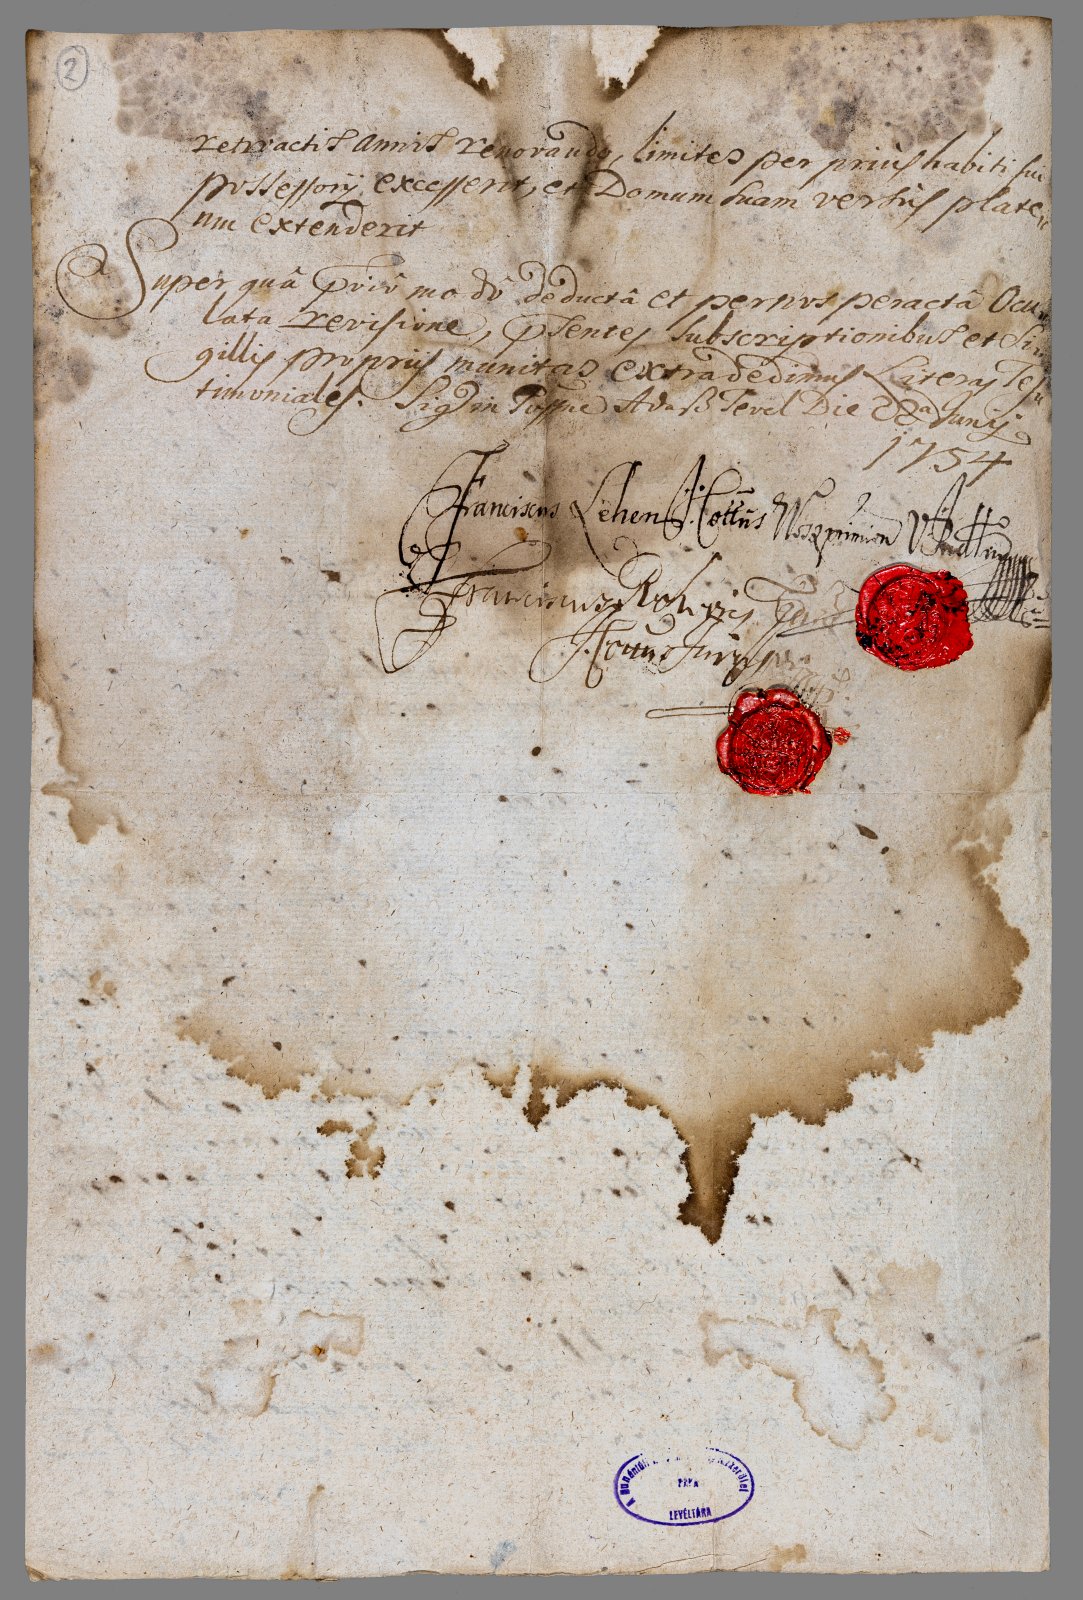 2
retractis annis renovando, limites per prius habiti sui
possessorij excesserit, et Domum suam versus plate
um extenderit
Super quâ prôvo mo dô deductâ et per nos peractâ Ocu
lata revisione, pŝentes subscriptionibus et Si
gillis proprijs munitas extradedimus Literas Tes
timoniales. Sig in Possne Adasz Tevel Die 22ª Junij
1754
Franciscus Lehen I. Cottus Veszprimien
Franciscus
I. Cottus Jurass
A Dunántúli
PÁPA
LEVÉLTÁRA